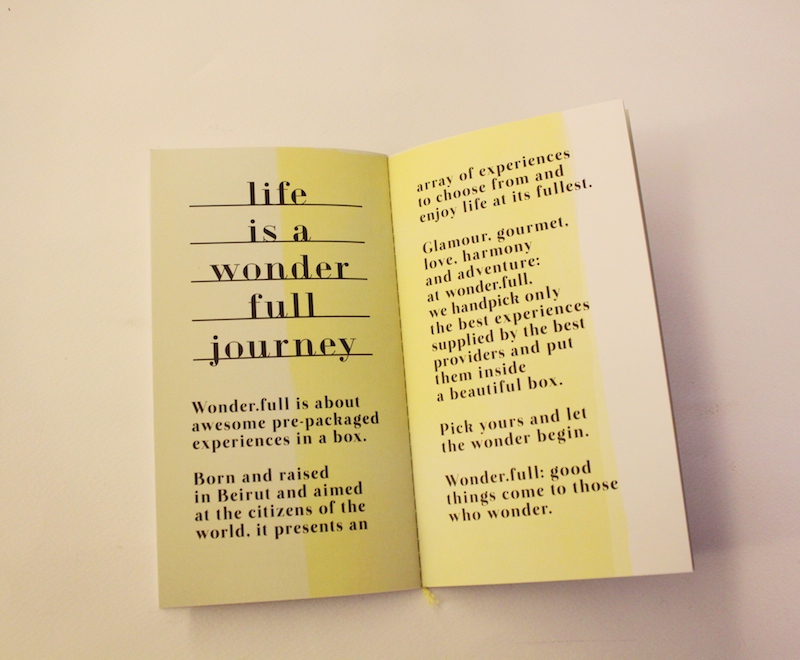 life
is a
wonder
full
journey
Wonder.full is about
awesome pre-packaged
experiences in a box.
Born and raised
in Beirut and aimed
at the citizens of the
world, it presents an
array of experiences
to choose from and
enjoy life at its fullest.
Glamour, gourmet,
love, harmony
and adventure:
at wonder.full,
we handpick only
the best experiences
supplied by the best
providers and put
them inside
a beautiful box.
Pick yours and let
the wonder begin.
Wonder.full: good
things come to those
who wonder.